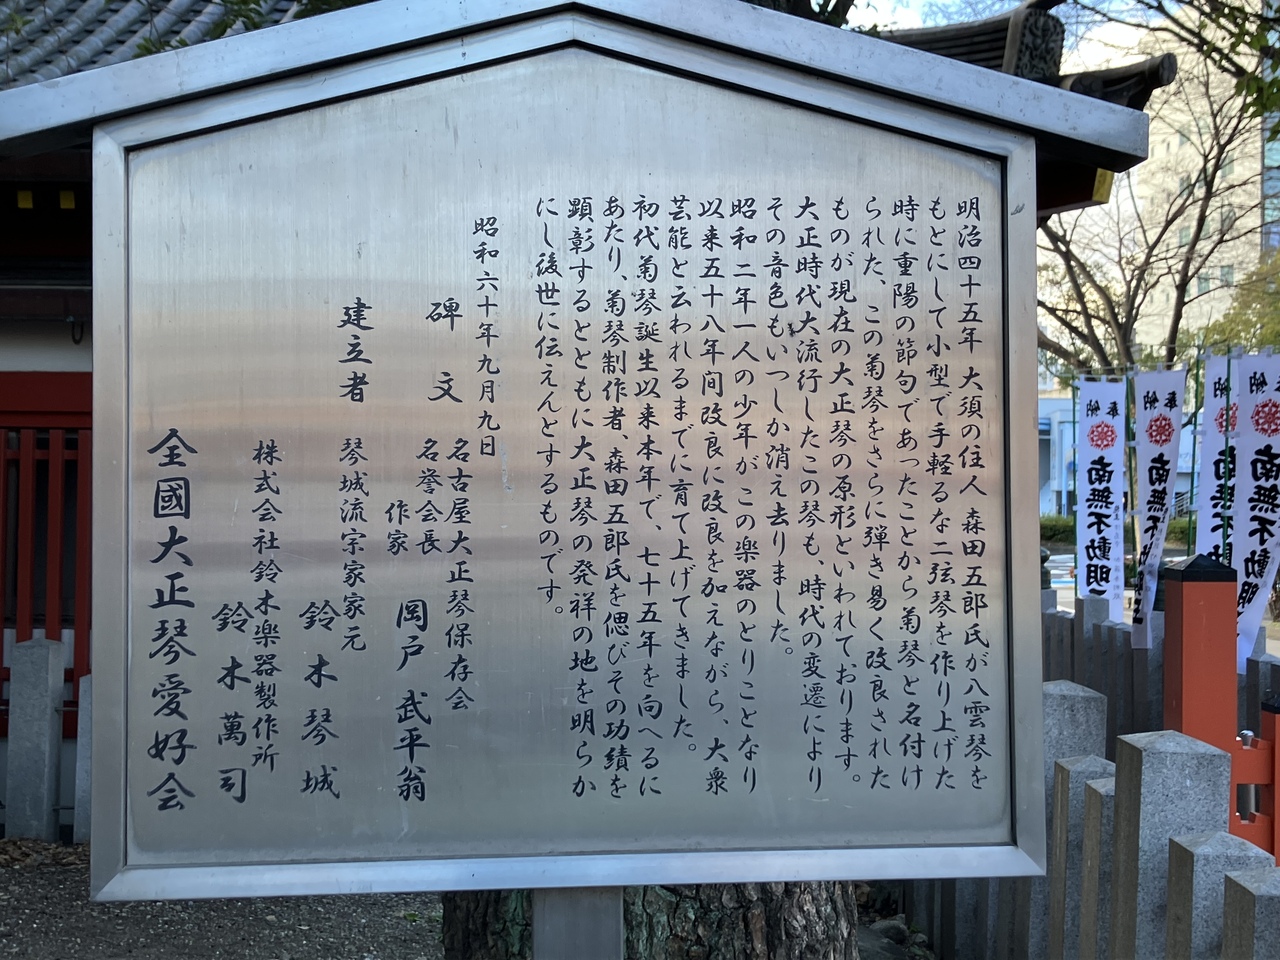 明治四十五年 大須の住人 森田五郎氏が八雲琴を
もとにして小型で手軽るな二弦琴を作り上げた
時に重陽の節句であったことから菊琴と名付け
られた、この菊琴をさらに弾き易く改良された
ものが現在の大正琴の原形といわれております。
大正時代大流行したこの琴も、時代の変遷により
その音色もいつしか消え去りました。
昭和二年一人の少年がこの楽器のとりことなり
以来五十八年間改良に改良を加えながら、大衆
芸能と云われるまでに育て上げてきました。
初代菊琴誕生以来本年で、七十五年を向へるに
あたり、菊琴制作者、森田五郎氏を偲びその功績を
顕彰するとともに大正琴の発祥の地を明らか
にし後世に伝えんとするものです。
昭和六十年九月九日
碑文 名古屋大正琴保存会
名誉会長
作家 岡戸武平翁
建立者 琴城流宗家家元
鈴木琴城
株式会社鈴木楽器製作所
鈴木萬司
全國大正琴愛好会
奉納
南無不動明
奉納
南無不動明
奉納
南無不動明
奉納
南無不動明